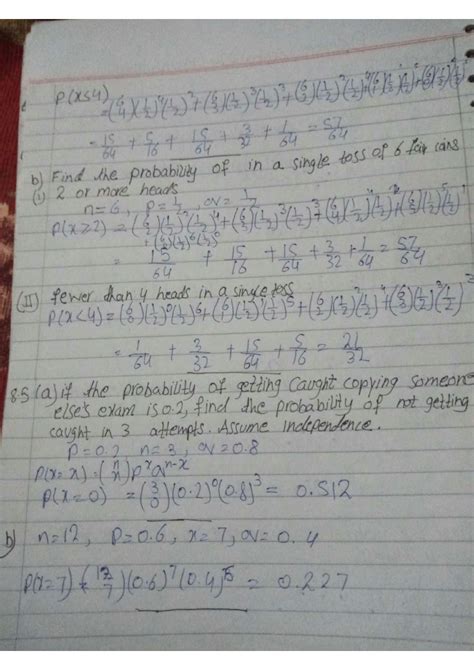 P(x≤4)
=(6/4)(1/2)^4(1/2)^2+(6/3)(1/2)^3(1/2)^3+(6/2)(1/2)^2(1/2)^4+(6/1)(1/2)(1/2)^5+(6/0)(1/2)^0(1/2)^6
= 15/64 + 5/16 + 15/64 + 3/32 + 1/64 = 57/64
b) Find the probability of in a single toss of 6 fair coins
(i) 2 or more heads
n=6, P=1/2, q=1/2
P(x≥2)=(6/2)(1/2)^2(1/2)^4+(6/3)(1/2)^3(1/2)^3+(6/4)(1/2)^4(1/2)^2+(6/5)(1/2)^5(1/2)
+(6/6)(1/2)^6(1/2)^0
= 15/64 + 15/16 + 15/64 + 3/32 + 1/64 = 57/64
(II) fewer than 4 heads in a single toss
P(x<4)=(6/0)(1/2)^0(1/2)^6+(6/1)(1/2)(1/2)^5+(6/2)(1/2)^2(1/2)^4+(6/3)(1/2)^3(1/2)^3
= 1/64 + 3/32 + 15/64 + 5/16 = 21/32
8.5 (a) if the probability of getting caught copying someone
else's exam is 0.2, find the probability of not getting
caught in 3 attempts. Assume independence.
P=0.2, n=3, q=0.8
P(x=x)=(n/x)p^x q^n-x
P(x=0) =(3/0)(0.2)^0(0.8)^3 = 0.512
b) n=12, P=0.6, x=7, q=0.4
P(x=7)=(12/7)(0.6)^7(0.4)^5 = 0.227